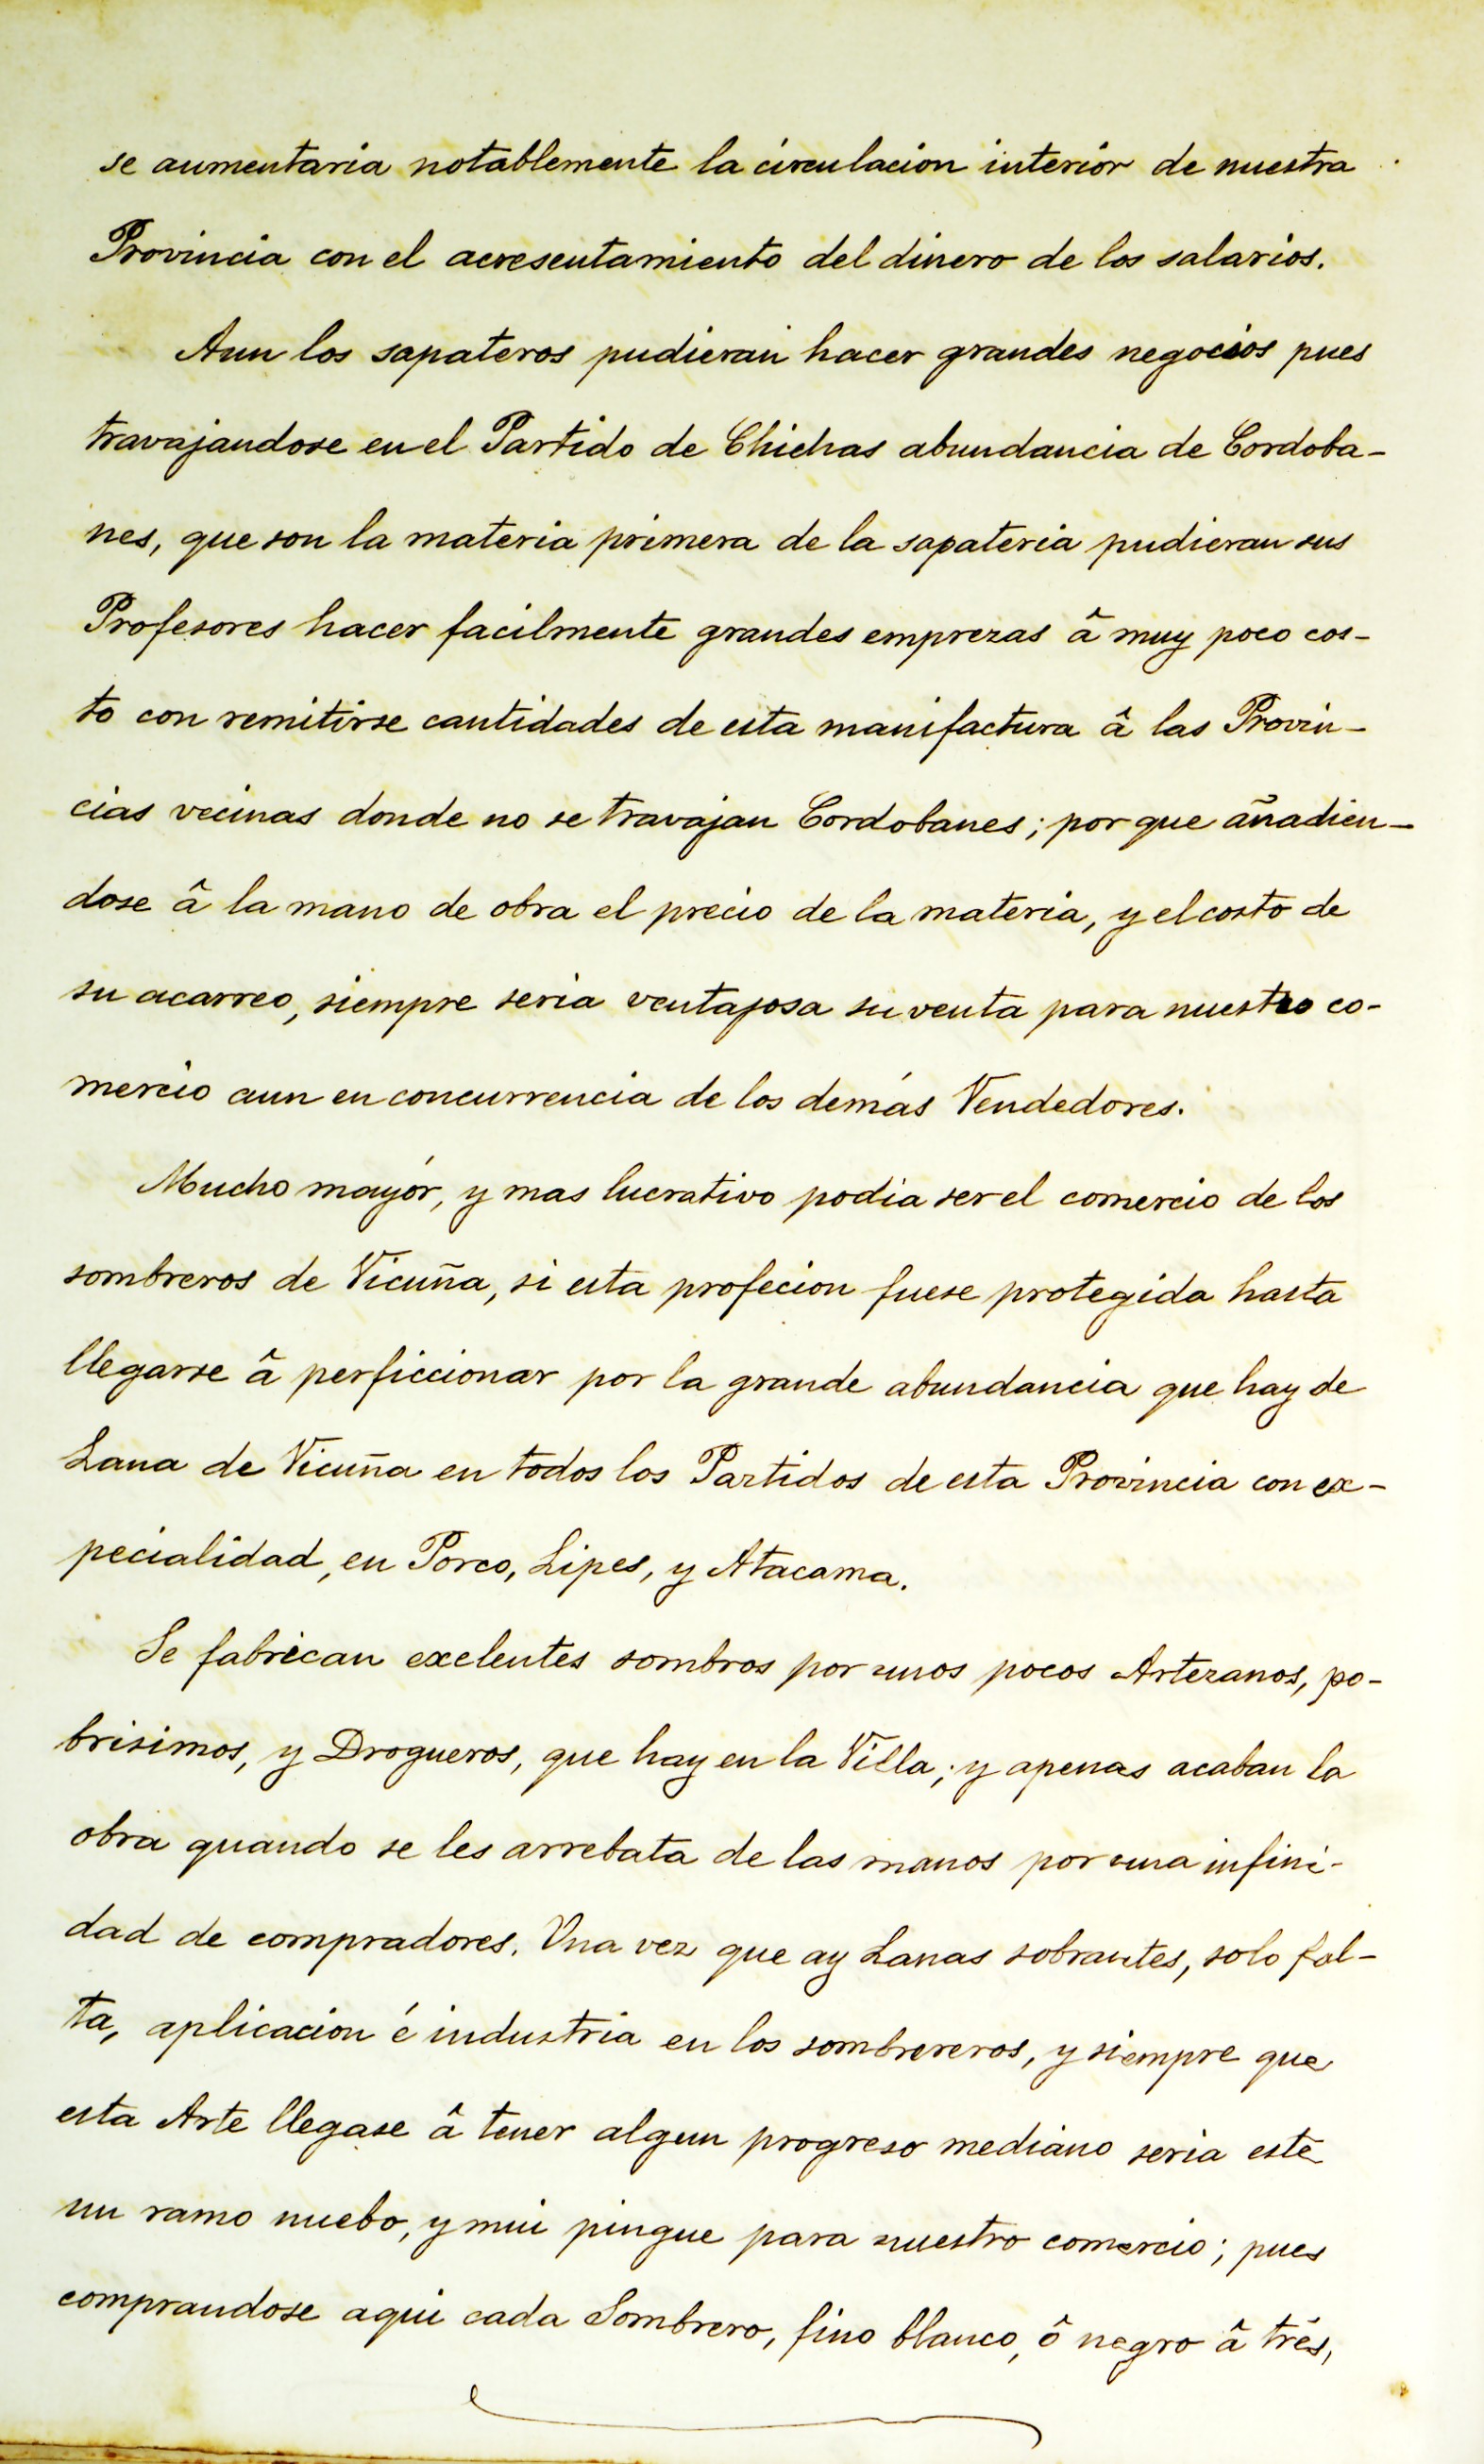 se aumentaria notablemente la circulacion interior de nuestra
Provincia con el acresentamiento del dinero de los salarios.
Aun los sapateros pudieran hacer grandes negocios pues
travajandose en el Partido de Chichas abundancia de Cordoba-
nes, que son la materia primera de la sapateria pudieran sus
Profesores hacer facilmente grandes emprezas â muy poco cos-
to con remitirse cantidades de esta manifactura â las Provin-
cias vecinas donde no se travajan Cordobanes; por que añadien-
dose â la mano de obra el precio de la materia, y el costo de
su acarreo, siempre seria ventajosa su venta para nuestro co-
mercio aun en concurrencia de los demás Vendedores.
Mucho mayór, y mas lucrativo podia ser el comercio de los
sombreros de Vicuña, si esta profecion fuese protegida hasta
llegarse â perficcionar por la grande abundancia que hay de
Lana de Vicuña en todos los Partidos de esta Provincia con ex-
pecialidad, en Porco, Lipes, y Atacama.
Se fabrican exelentes sombros por unos pocos Artezanos, po-
brisimos, y Drogueros, que hay en la Villa; y apenas acaban la
obra quando se les arrebata de las manos por una infini-
dad de compradores. Una vez que ay Lanas sobrantes, solo fal-
ta, aplicacion é industria en los sombrereros, y siempre que
esta Arte llegase â tener algun progreso mediano seria este
un ramo nuebo, y mui pingue para nuestro comercio; pues
comprandose aqui cada Sombrero, fino blanco, ô negro â trés,